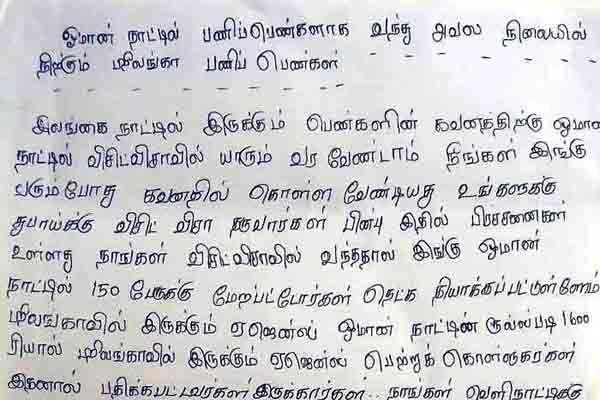 ஓமான் நாட்டில் பணிப்பெண்களாக வந்து அவல நிலையில்
நிற்கும் ஸ்ரீலங்கா பணிப் பெண்கள்
இலங்கை நாட்டில் இருக்கும் பெண்களின் கவனத்திற்கு ஓமான
நாட்டில் விசிட்விசாவில் யாரும் வர வேண்டாம் நீங்கள் இங்கு
வரும்போது கவனதில் கொள்ள வேண்டியது உங்களுக்கு
துபாய்க்கு விசிட் விசா தருவார்கள் பின்பு இதில் பிரச்சனைகள்
உள்ளது நாங்கள் விசிட்விசாவில் வந்ததால் இங்கு ஓமான்
நாட்டில் 150 பேருக்கு மேறபட்டோர்கள் தெட்க தியாக்கப்பட்டுள்ளோம்
ஸ்ரீலங்காவில் இருக்கும் ஏஜென்ஸ் ஓமான் நாட்டின் ரூல்ஸ்படி 1600
ரியால் ஸ்ரீலங்காவில் இருக்கும் ஏஜென்ஸ் பெற்றுக் கொள்ளுகரர்கள்
இதனால் பதிக்கபட்டவர்கள் இருக்கார்கள்.. நாங்கள் வெளிநாட்டிக்கு